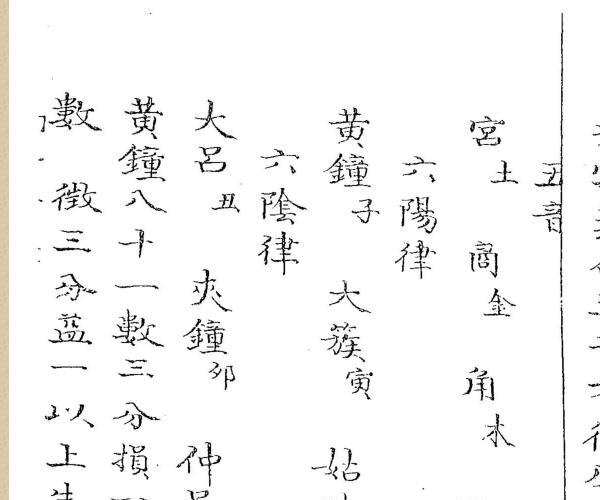 五音
宮土 商金 角木
六陽律
黃鐘子 大簇寅 姑
六陰律
大呂丑 夾鐘卯 仲
黃鐘八十一數三分損
數 徵三分益一以上